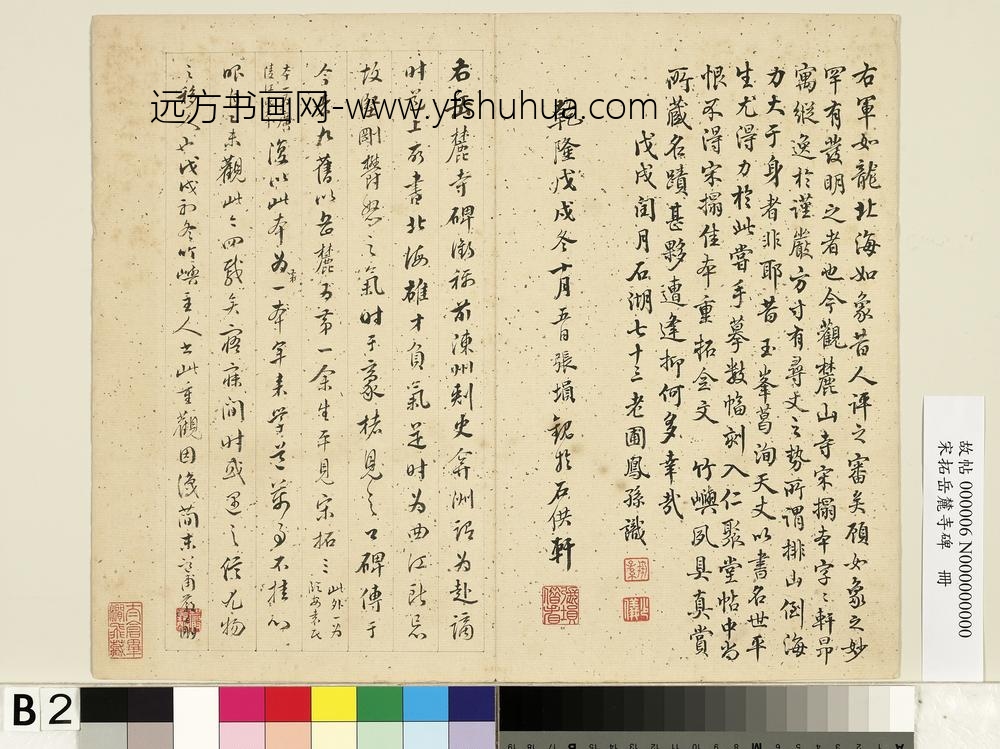 右軍如龍北海如象昔人評之審矣顧如象之妙
罕有發明之者也今觀麓山寺宋搨本字〻軒昂
寓縱逸於謹嚴方寸有尋丈之勢所謂排山倒海
力大于身者非耶昔玉峯葛洵天丈以書名世平
生尤得力於此嘗手摹數幅刻入仁聚堂帖中尚
恨不得宋搨佳本重拓全文 竹嶼夙具真賞
所藏名蹟甚夥遭逢抑何多幸哉
戊戌閏月石湖七十三老圃鳳孫識
乾隆戊戌冬十月五日張塤觀於石供軒
右岳麓寺碑銜稱前陳州刺史弇洲謂為赴謫
时道上所書北海雄才負氣是时为曲江所忌
故磊砢鬱怒之氣时于豪楮見之口碑傳于
今 舊以岳麓为第一余生平見宋拓三
此外一为
本 復以此本为一本年来学道萬事不挂心
眼 未觀此〻四載矣寤寐间时或遇之信尤物
之移人也戊戌初冬竹嶼主人出此重觀因復简末
远方书画网-www.yfshuhua.com
故帖 000006 N000000000
宋拓岳麓寺碑 册
B 2